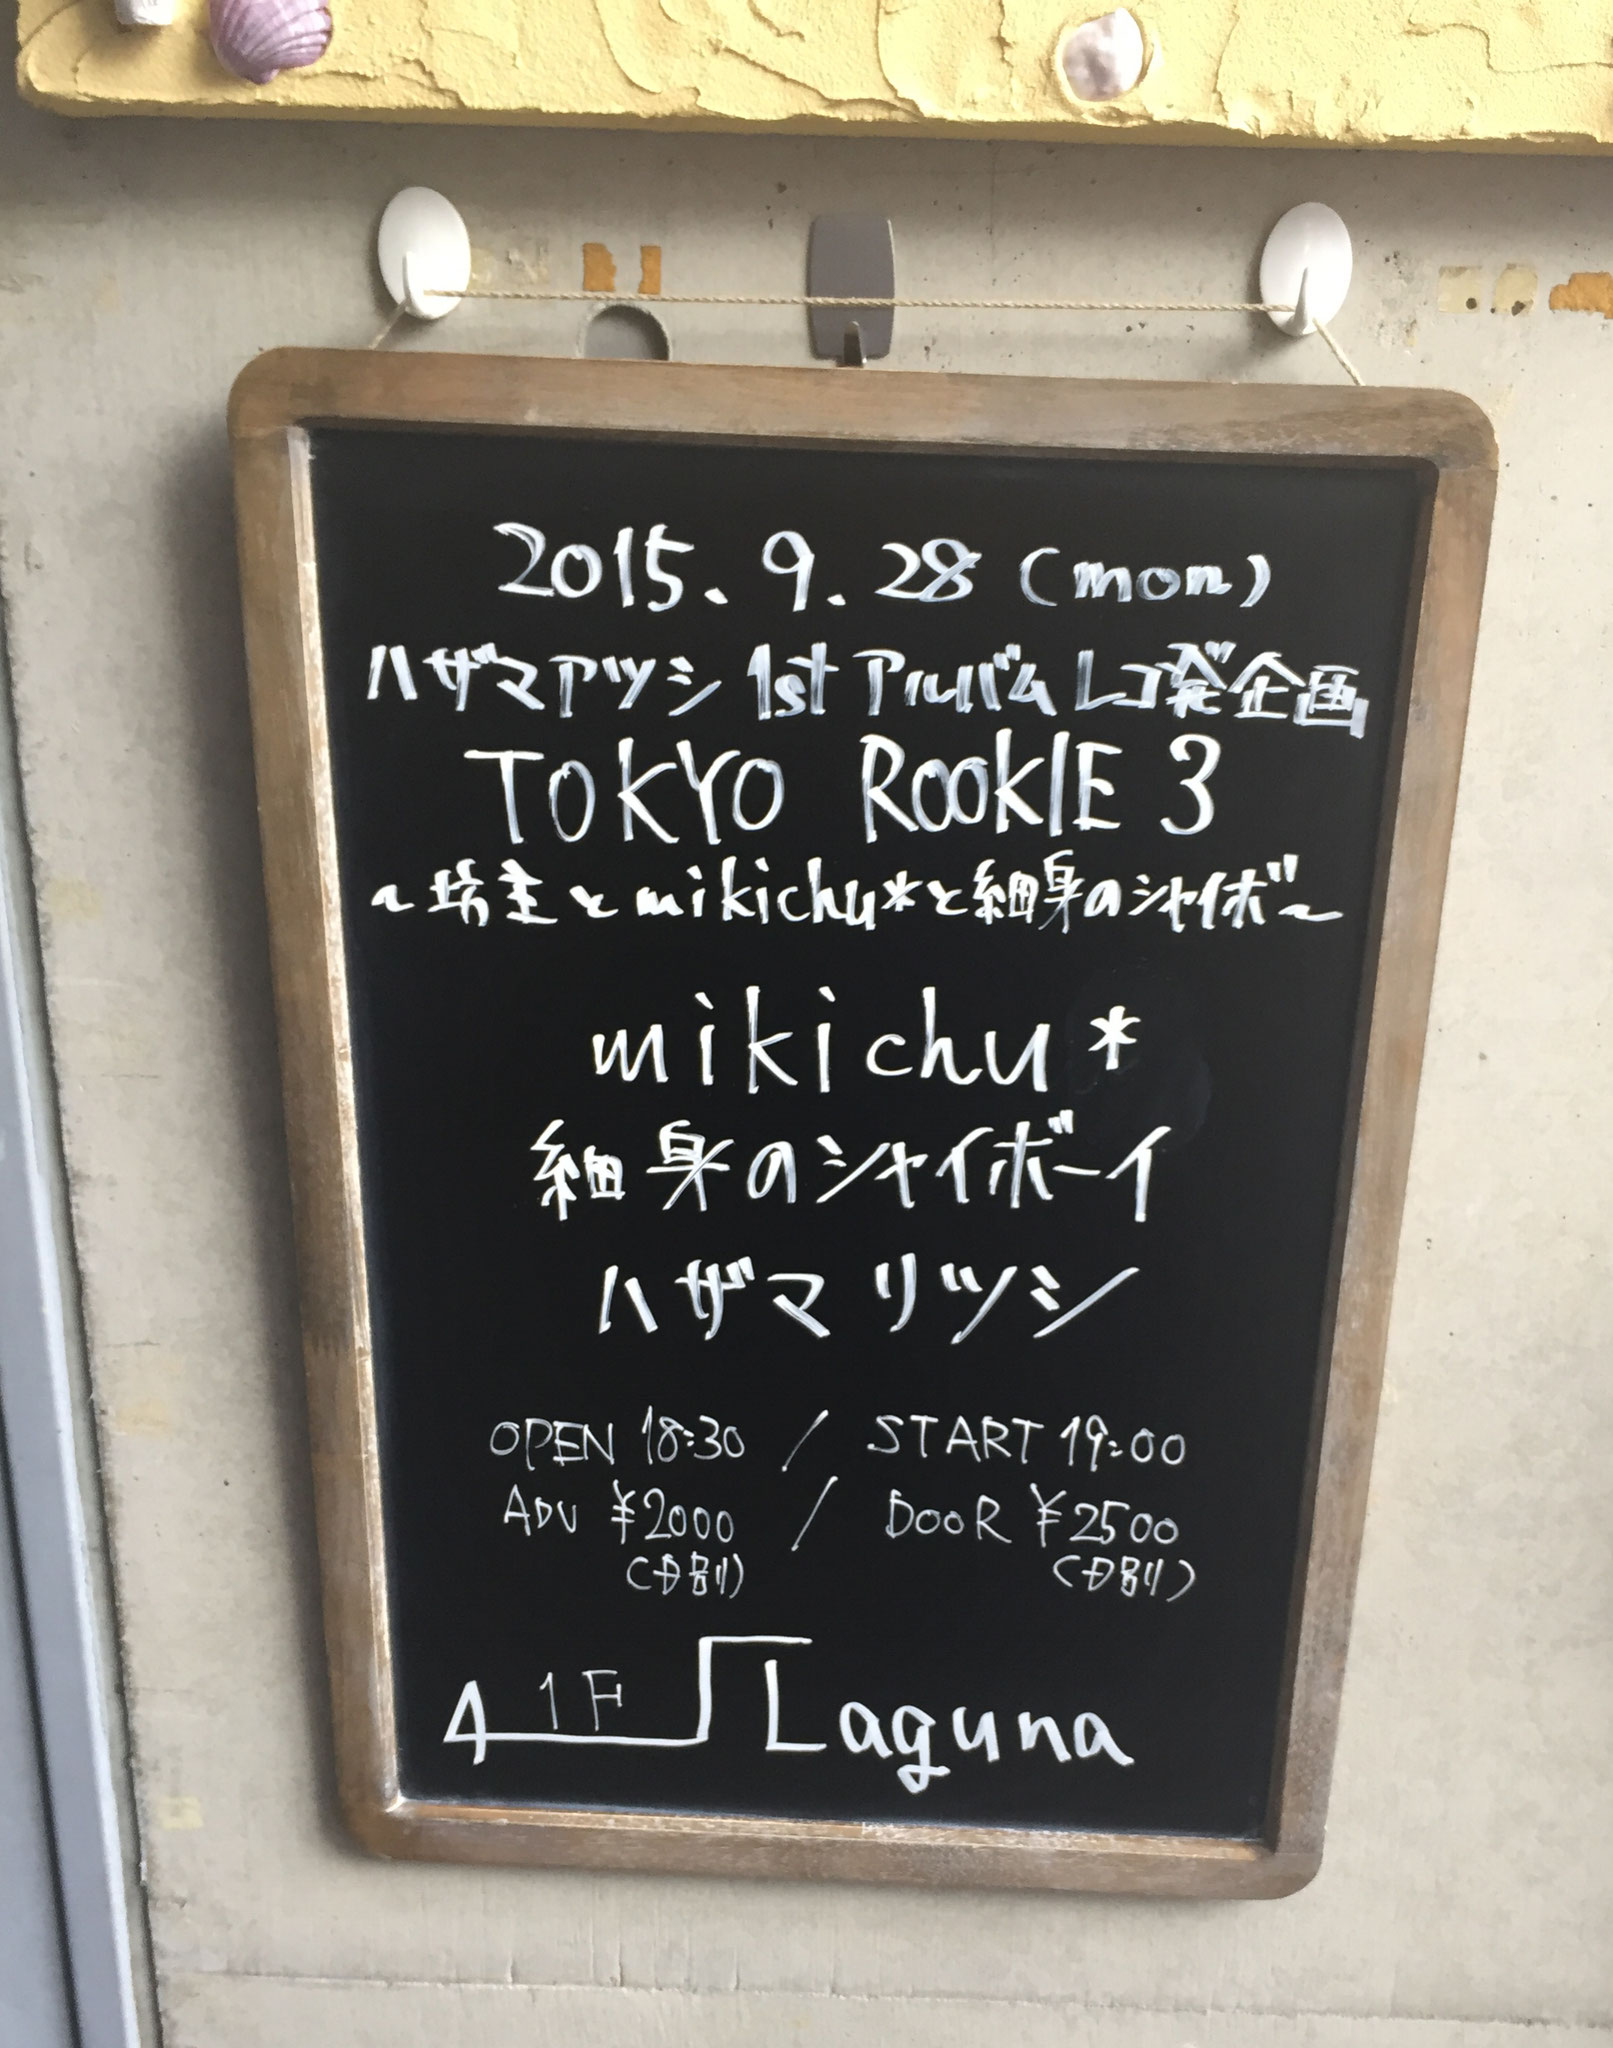 2015. 9. 28 (mon)
ハザマアツシ 1st アルバム レコ発企画
TOKYO ROOKIE 3
〜坊主とmikichu*と細身のシャイボ〜
mikichu*
細身のシャイボーイ
ハザマリツシ
OPEN 18:30 / START 19:00
ADV ¥2000 / DOOR ¥2500
(D別) (D別)
1F Laguna